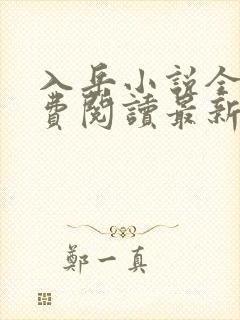 入岳小說全
費閱讀最新
鄭一真